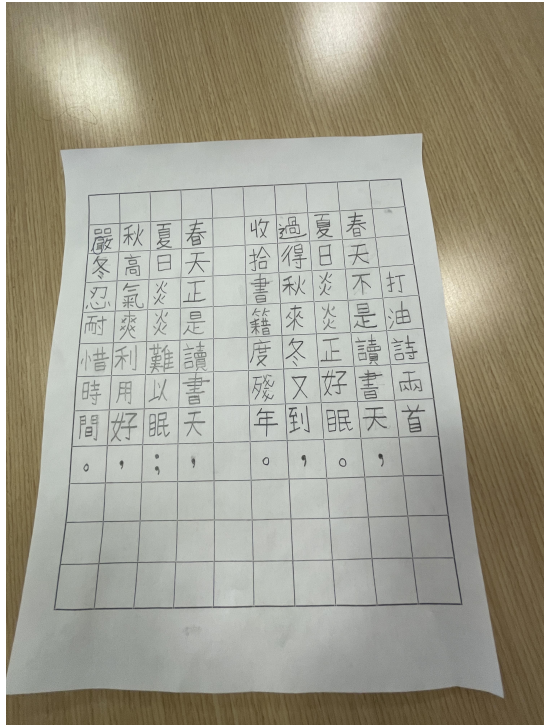 打油詩兩首
春天不是讀書天，
夏日炎炎正好眠。
過得秋來冬又到，
收拾書籍度殘年。
春天正是讀書天，
夏日炎炎難以眠；
秋高氣爽利用好，
嚴冬忍耐惜時間。